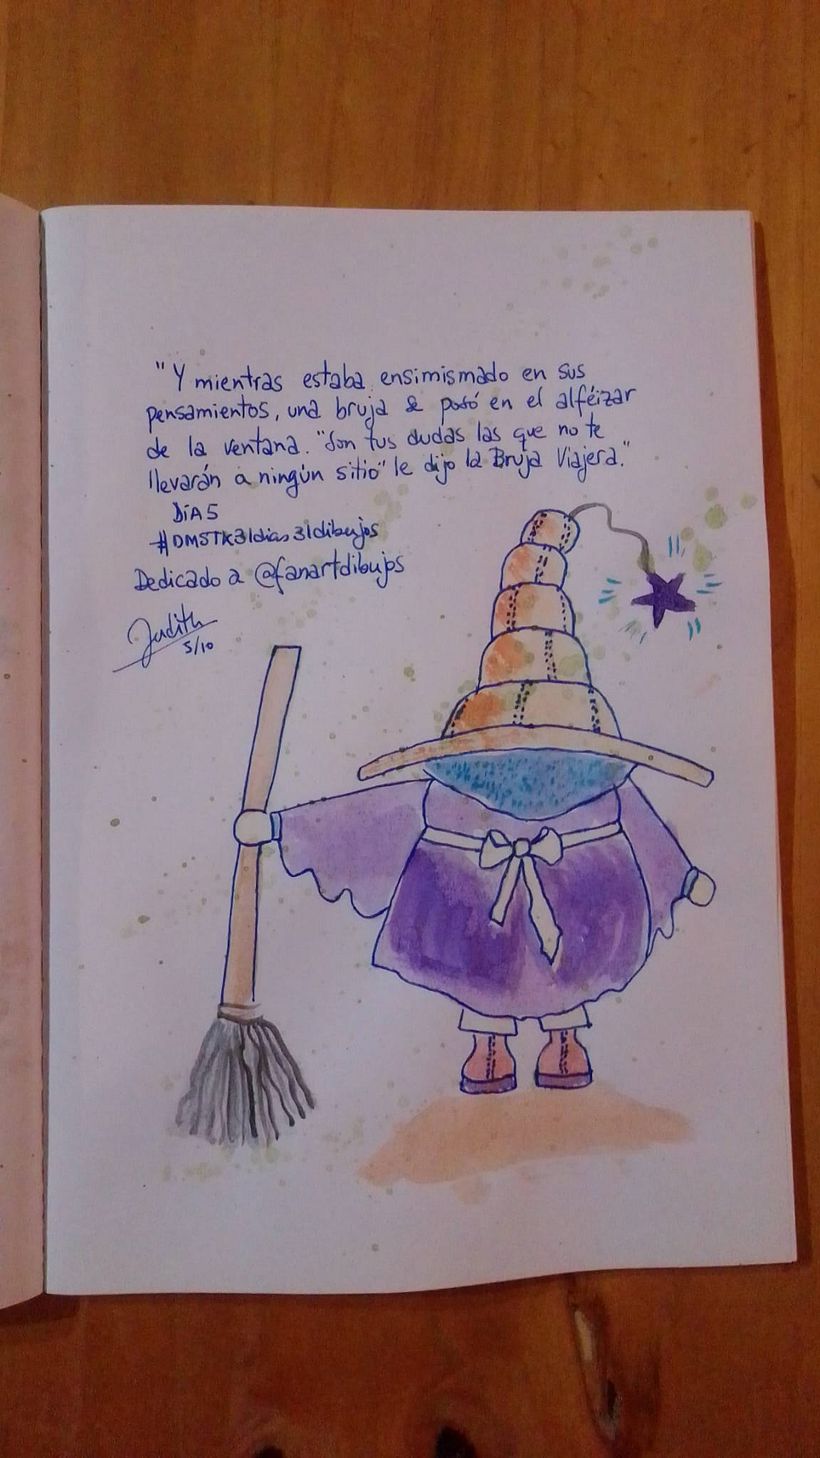 "Y mientras estaba ensimismado en sus
pensamientos, una bruja se posó en el alféizar
de la ventana. "Son tus dudas las que no te
llevarán a ningún sitio" le dijo la Bruja Viajera."
DÍA 5
#DMSTK31dias31dibujos
Dedicado a @fanartdibujos
Judith
5/10